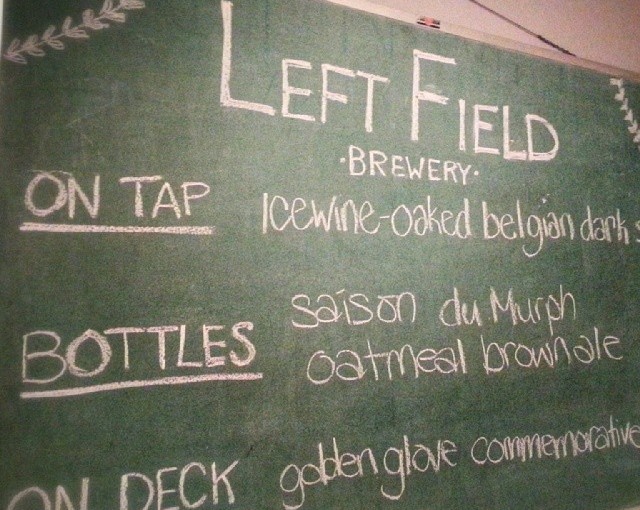 LEFT FIELD
·BREWERY·
ON TAP Icewine-oaked belgian dark s
BOTTLES saison du Murph
oatmeal brown ale
ON DECK golden glove commemorative